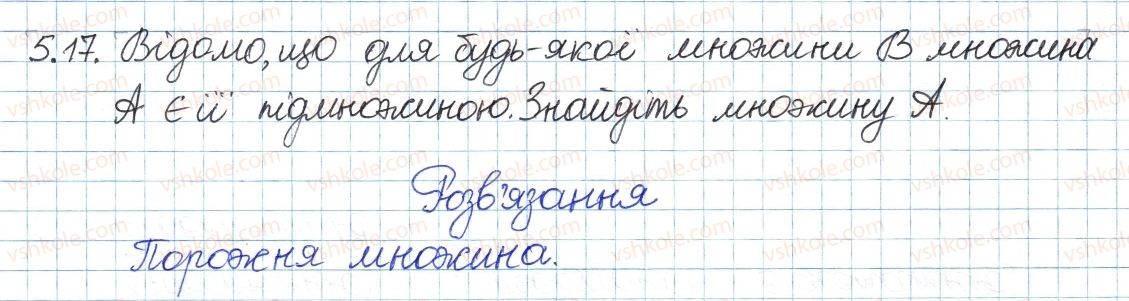 5.17. Відомо, що для будь-якої множини В множина
А є її підмножиною. Знайдіть множину А.
Розв'язання
Порожня множина.